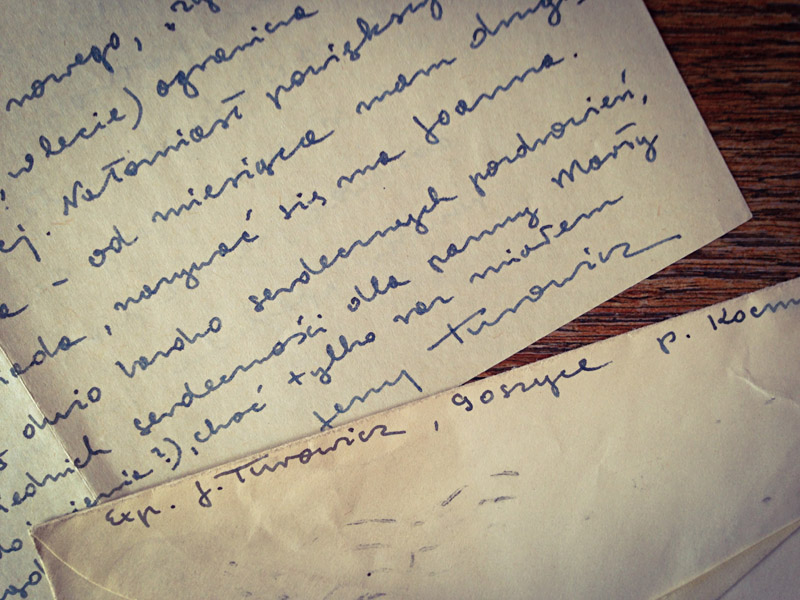 nowego,
w lecie) ogranicza
ej. Natomiast powiększy
- od miesiąca mam drug
, nazywać się ma Joanna.
dużo bardzo serdecznych pozdrowień,
serdeczności dla panny Marty
), choć tylko raz miałem
Jerzy Turowicz
Exp. J. Turowicz, Goszyce p. Kocm